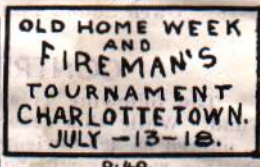 OLD HOME WEEK
AND
FIREMAN'S
TOURNAMENT
CHARLOTTETOWN.
JULY -13-18.